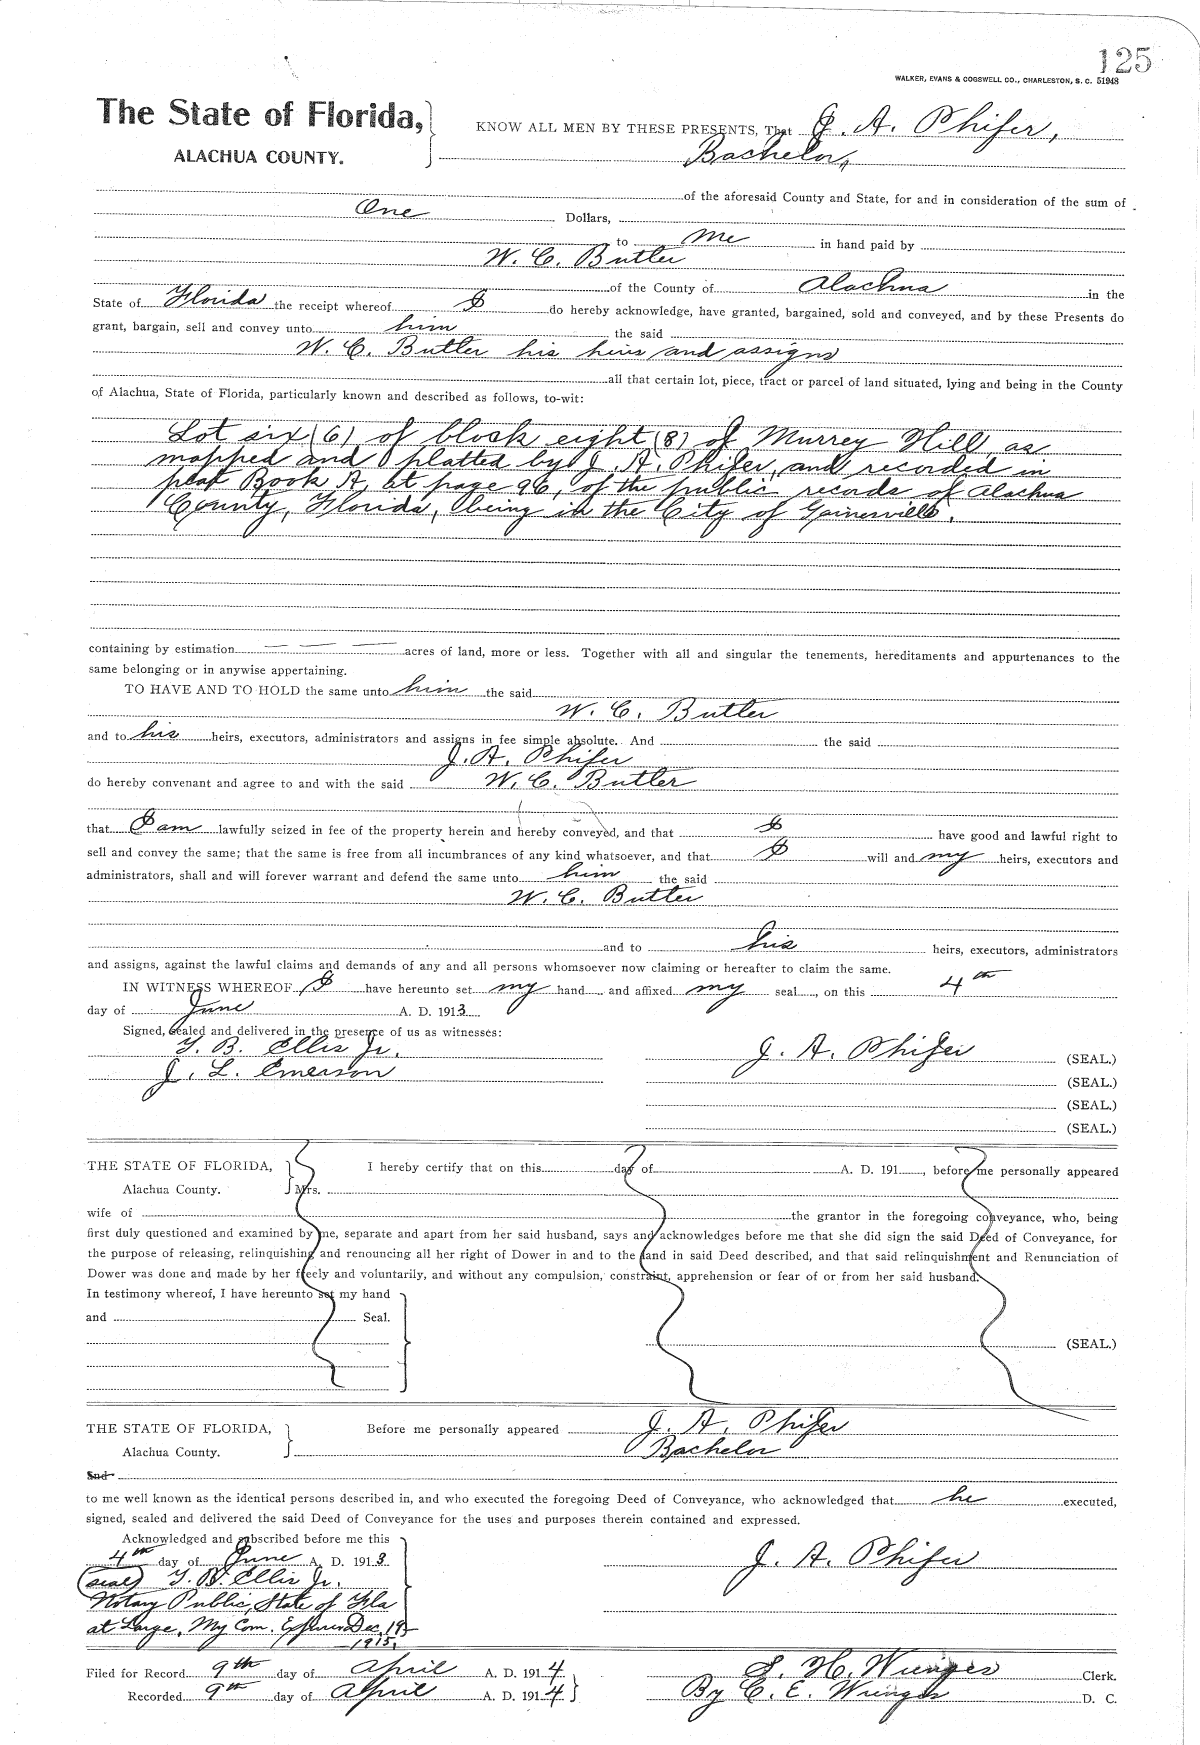 125
WALKER, EVANS & COGSWELL CO., CHARLESTON, S. C. 51948
The State of Florida,
KNOW ALL MEN BY THESE PRESENTS, That J. A. Phifer,
ALACHUA COUNTY.
Bachelor,
of the aforesaid County and State, for and in consideration of the sum of
One Dollars,
to me in hand paid by
W. C. Butler
of the County of Alachua in the
State of Florida the receipt whereof I do hereby acknowledge, have granted, bargained, sold and conveyed, and by these Presents do
grant, bargain, sell and convey unto him the said
W. C. Butler his heirs and assigns
all that certain lot, piece, tract or parcel of land situated, lying and being in the County
of Alachua, State of Florida, particularly known and described as follows, to-wit:
Lot six (6) of block eight (8) of Murrey Hill, as
mapped and platted by J. A. Phifer, and recorded in
plat Book A, at page 96, of the public records of Alachua
County, Florida, being in the City of Gainesville.
containing by estimation — — — acres of land, more or less. Together with all and singular the tenements, hereditaments and appurtenances to the
same belonging or in anywise appertaining.
TO HAVE AND TO HOLD the same unto him the said
W. C. Butler
and to his heirs, executors, administrators and assigns in fee simple absolute. And the said
J. A. Phifer
do hereby convenant and agree to and with the said W. C. Butler
that I am lawfully seized in fee of the property herein and hereby conveyed, and that I have good and lawful right to
sell and convey the same; that the same is free from all incumbrances of any kind whatsoever, and that I will and my heirs, executors and
administrators, shall and will forever warrant and defend the same unto him the said
W. C. Butler
and to his heirs, executors, administrators
and assigns, against the lawful claims and demands of any and all persons whomsoever now claiming or hereafter to claim the same.
IN WITNESS WHEREOF I have hereunto set my hand and affixed my seal, on this 4th
day of June A. D. 1913
Signed, sealed and delivered in the presence of us as witnesses:
T. B. Ellis Jr.
J. A. Phifer (SEAL.)
J. L. Emerson
(SEAL.)
(SEAL.)
(SEAL.)
THE STATE OF FLORIDA, I hereby certify that on this day of A. D. 191 , before me personally appeared
Alachua County. Mrs.
wife of the grantor in the foregoing conveyance, who, being
first duly questioned and examined by me, separate and apart from her said husband, says and acknowledges before me that she did sign the said Deed of Conveyance, for
the purpose of releasing, relinquishing and renouncing all her right of Dower in and to the land in said Deed described, and that said relinquishment and Renunciation of
Dower was done and made by her freely and voluntarily, and without any compulsion, constraint, apprehension or fear of or from her said husband.
In testimony whereof, I have hereunto set my hand
and Seal.
(SEAL.)
THE STATE OF FLORIDA, Before me personally appeared J. A. Phifer
Alachua County. Bachelor
and
to me well known as the identical persons described in, and who executed the foregoing Deed of Conveyance, who acknowledged that he executed,
signed, sealed and delivered the said Deed of Conveyance for the uses and purposes therein contained and expressed.
Acknowledged and subscribed before me this
4th day of June A. D. 1913
J. A. Phifer
(seal) T. B. Ellis Jr.
Notary Public, State of Fla
at Large, My Com. Expires Dec. 19
1915.
Filed for Record 9th day of April A. D. 1914
S. H. Wienges Clerk.
Recorded 9th day of April A. D. 1914
By C. E. Wienges D. C.